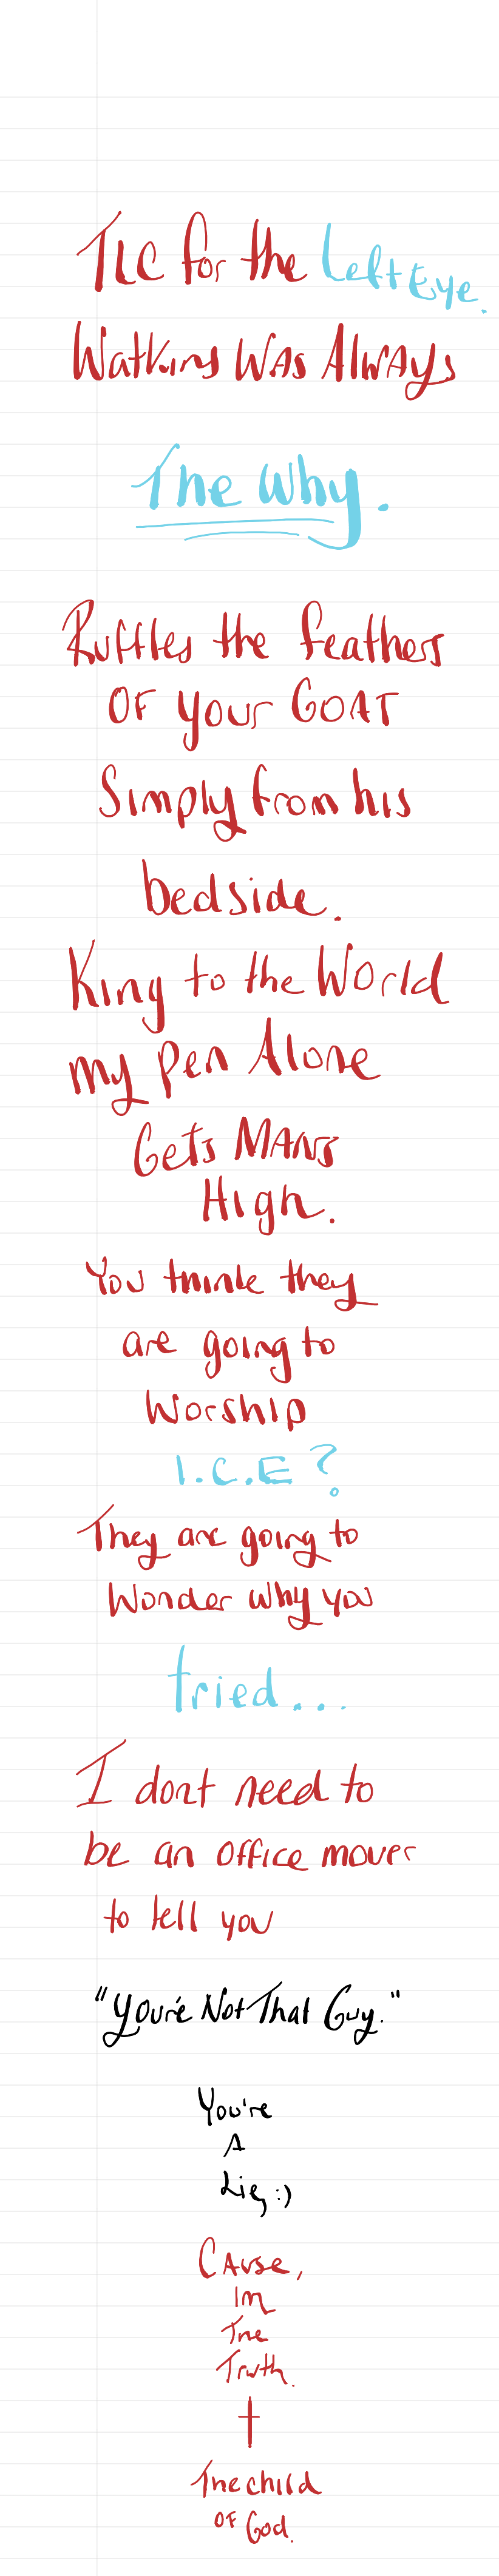 TLC for the Left Eye.
Watkins WAs AlWAys
The Why.
Ruffles the feathers
OF your GOAT
Simply from his
bedside.
King to the World
my pen Alone
Gets MANs
High.
You think they
are going to
Worship
I.C.E?
They are going to
Wonder why you
tried...
I dont need to
be an office mover
to tell you
"You're Not That Guy."
You're
A
Lie, :)
CAuse,
Im
The
Truth.
†
The child
OF God.